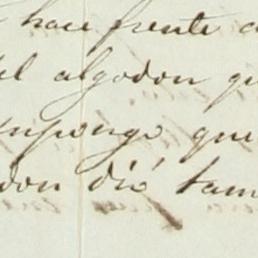 hace frente a
el algodon qu
supongo que
don dió tam